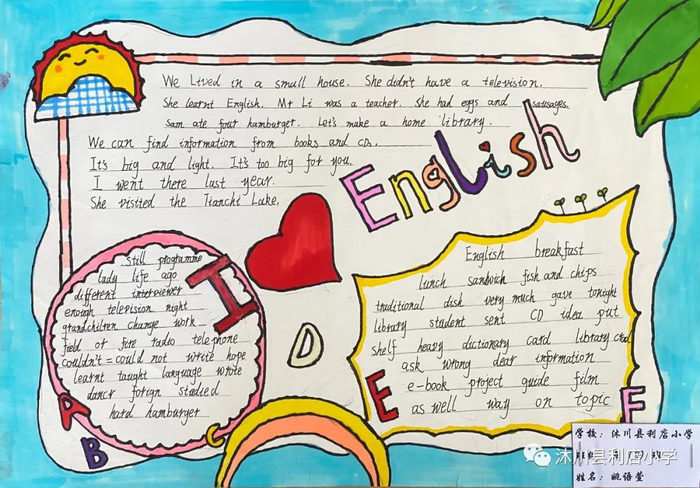 We Lived in a small house. She dodn't have a television.
She learnt English. Mr Li was a teacher. She had eggs and sausages.
Sam ate four hamburger. Let's make a home library.
We can find information from books and CDs.
It's big and light. It's too big for you.
I went there last year.
She visited the Tianchi Lake.
I
English
still programme
lady life ago
different interviewer
enough television night
grandchilren change work
field or fire radio telephone
couldn't=could not write hope
learnt taught language wrote
dancr foreign studied
hard hamburger
English breakfast
lunch sandwich fish and chips
traditional dish very much gave tonight
library student sent CD idea put
shelf heavy dictionary card library card
ask wrong dear information
e-book project guide film
as well way on topic
A
B
C
D
E
F
学校：沐川县利店小学
姓名：姚语萱
沐川县利店小学